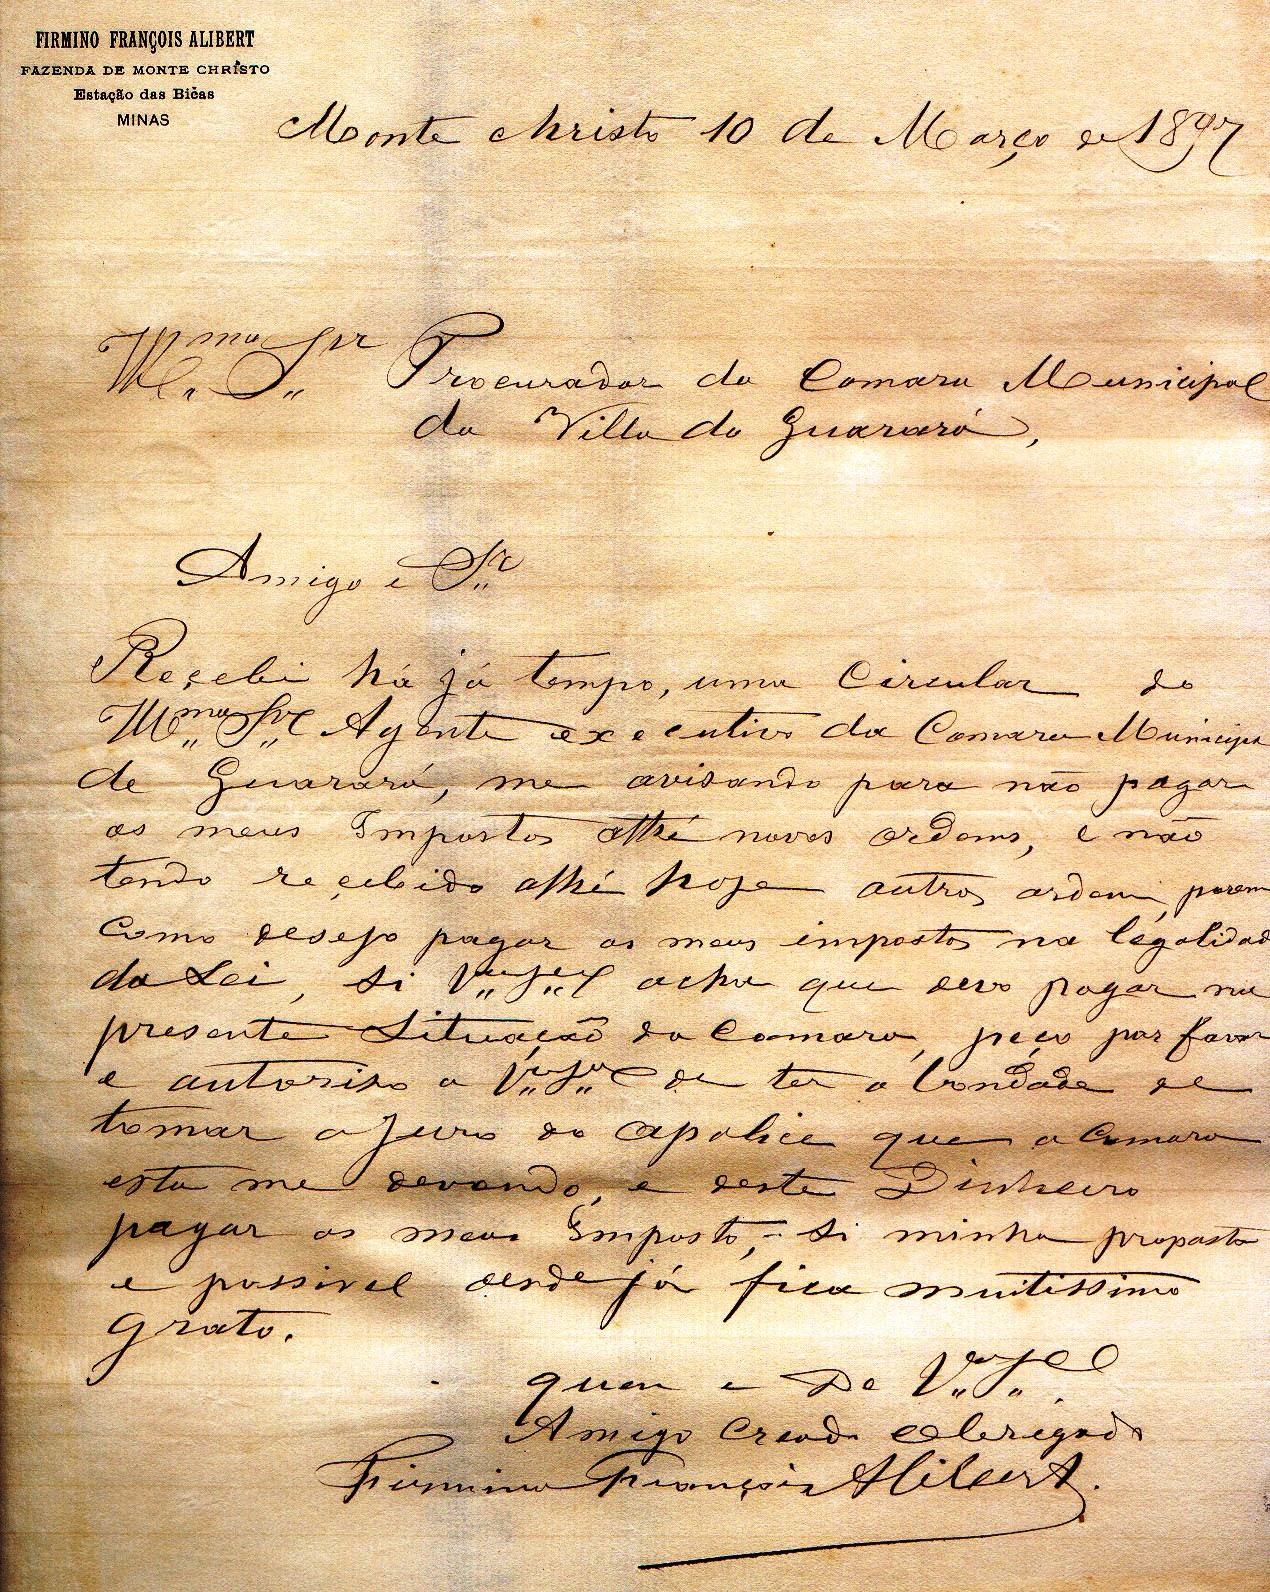 FIRMINO FRANÇOIS ALIBERT
FAZENDA DE MONTE CHRISTO
Estação das Bicas
MINAS
Monte Christo 10 de Março de 1897
Procurador da Camara Municipal
da Villa do Guarará,
Amigo e Sr
Reçebi há já tempo, uma Circular do
Agente executivo da Camara Municipa
de Guarará, me avisando para não pagar
os meus Impostos athé novas ordems, e não
tendo reçebido athé hoje outros ordem, porem
Como desejo pagar os meus impostos na legalidad
da Lei, si Va Sa acha que devo pagar na
presente Situação da Camara, peço por favor
e autoriso a Va Sa de ter a bondade de
tomar o Juro do apolice que a Camara
esta me devendo, e deste Dinheiro
pagar os meus Imposto, si minha proposta
e possivel desde já fica muitissimo
grato.
quem e De Va Sa
Amigo Creado Obrigado
Firmino François Alibert.